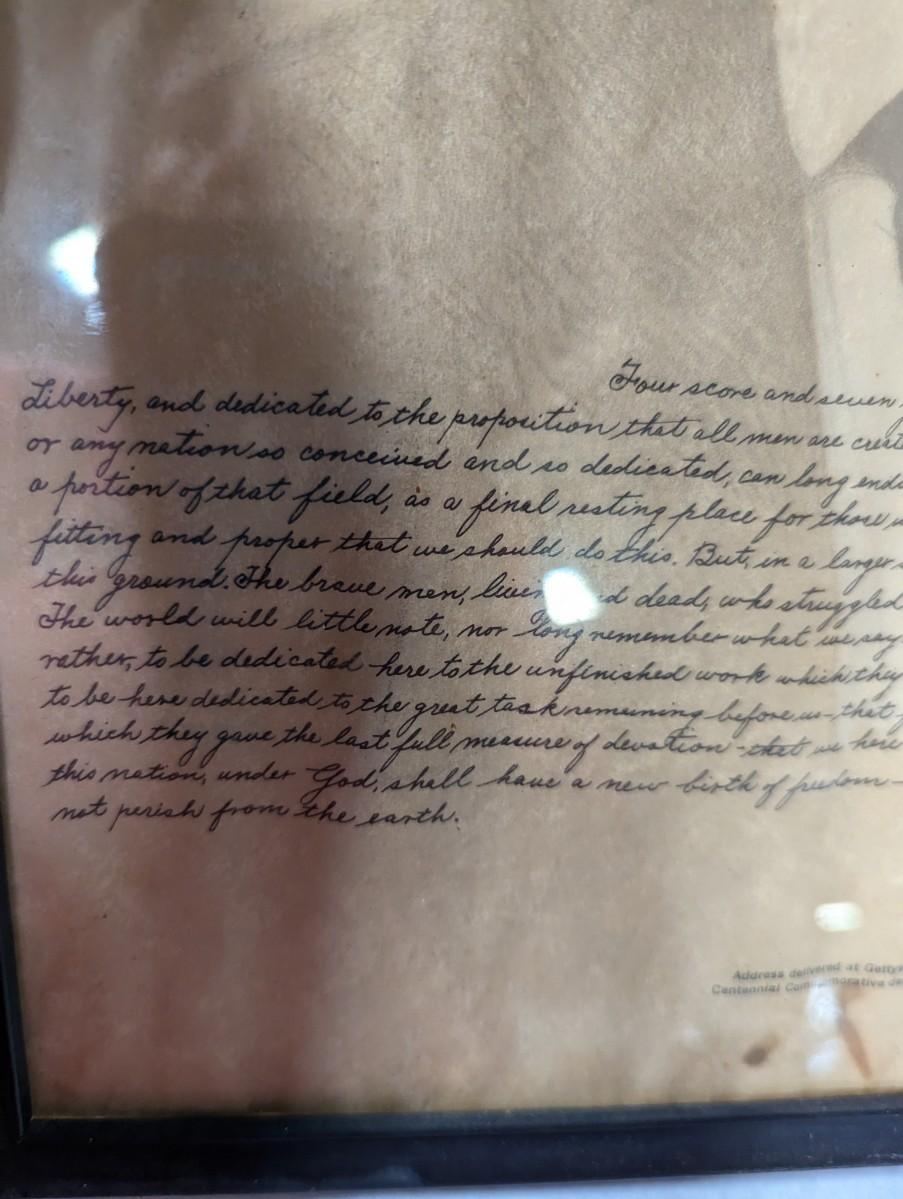 Four score and seven
Liberty, and dedicated to the proposition that all men are
or any nation so conceived and so dedicated, can long
a portion of that field, as a final resting place for those
fitting and proper that we should do this. But, in a larger
this ground. The brave men, dead, who struggled
The world will little note, nor long remember what we say
rather, to be dedicated here to the unfinished work which they
to be here dedicated to the great task remaining before us - that
which they gave the last full measure of devotion - that we here
this nation, under God, shall have a new birth of freedom -
not perish from the earth.
Address delivered at
Centennial Commemorative